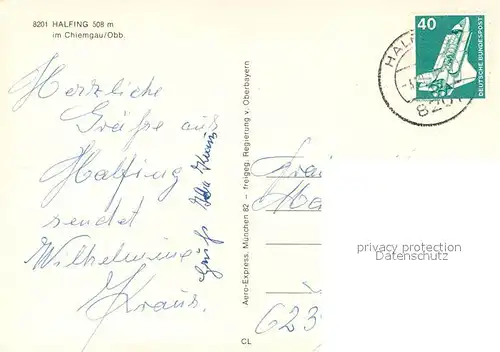 8201 HALFING 508 m
im Chiemgau/Obb.
Herzliche
Grüße aus
Halfing
sendet
Wilhelmine
Kraus.
Gruß Ida Kraus
Aero-Express, München 82 – freigeg. Regierung v. Oberbayern
CL
40
DEUTSCHE BUNDESPOST
HAL
820
privacy protection
Datenschutz
623